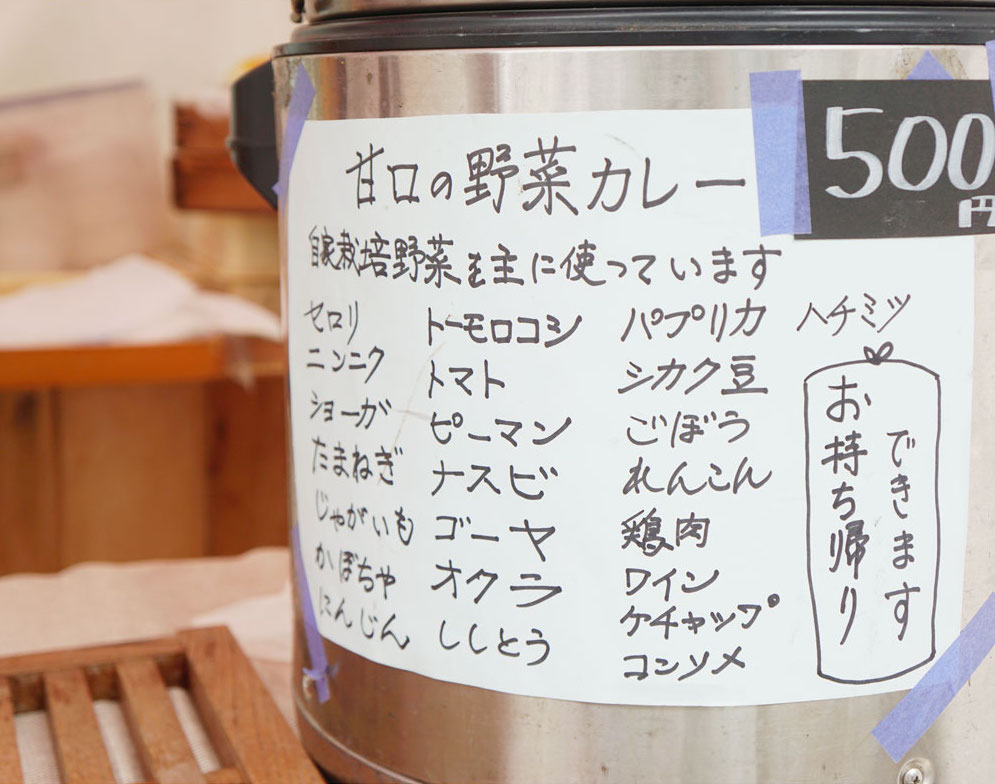 甘口の野菜カレー
500
円
自家栽培野菜を主に使っています
セロリ
ニンニク
ショーガ
たまねぎ
じゃがいも
かぼちゃ
にんじん
トーモロコシ
トマト
ピーマン
ナスビ
ゴーヤ
オクラ
ししとう
パプリカ
シカク豆
ごぼう
れんこん
鶏肉
ワイン
ケチャップ
コンソメ
ハチミツ
お持ち帰り
できます